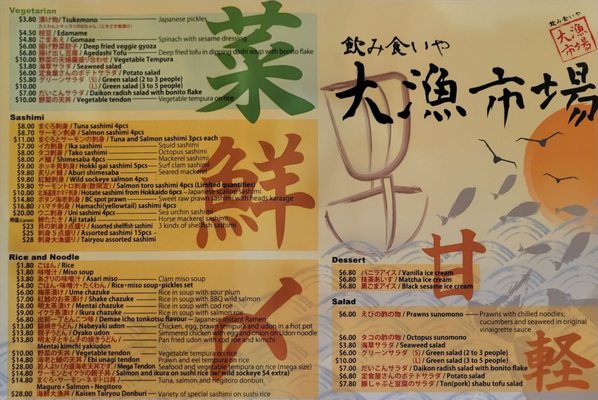 Vegetarian
$3.80 漬け物/ Tsukemono Japanese pickles
$4.50 枝豆/ Edamame
$6.00 ごまあえ/ Gomaae Spinach with sesame dressing
$6.00 揚げ野菜餃子/ Deep fried veggie gyoza
$6.80 揚げ出し豆腐/ Agedashi Tofu Deep fried tofu in dipping dashi soup with bonito flake
$10.00 野菜の天婦羅盛り合わせ/ Vegetable Tempura
$3.80 海草サラダ/ Seaweed salad
$6.80 定食屋さんのポテトサラダ/ Potato salad
$5.80 グリーンサラダ (S)/ Green salad (2 to 3 people)
$10.00 (L)/ Green salad (3 to 5 people)
だいこんサラダ/ Daikon radish salad with bonito flake
$10.00 野菜の天丼/ Vegetable tendon Vegetable tempura on rice
Sashimi
$8.00 まぐろ刺身/ Tuna sashimi 4pcs
$8.70 サーモン刺身/ Salmon sashimi 4pcs
$11.00 まぐろとサーモンの刺身/ Tuna and Salmon sashimi 3pcs each
$7.00 イカ刺身/ Ika sashimi Squid sashimi
タコ刺身/ Tako sashimi Octopus sashimi
〆鯖/ Shimesaba 4pcs Mackerel sashimi
ホッキ貝刺身/ Hokki gai sashimi 5pcs Surf clam sashimi
炙り〆鯖/ Aburi shimesaba Seared mackerel
紅鮭刺身/ Wild sockeye salmon 4pcs
サーモントロ刺身(数限定)/ Salmon toro sashimi (Limited quantities)
Hotate sashimi from Hokkaido 6pcs Japanese scallop sashimi
ボタン海老刺身/ BC spot prawn Sweet raw prawn sashimi with heads karaage
ハマチ刺身/ Hamachi sashimi 4pcs Yellowtail sashimi
$20.00 ウニ刺身/ Uni sashimi 4pcs Sea urchin sashimi
鯵たたき/ Aji tataki Horse mackerel sashimi
$23 貝の刺身3点盛り/ Assorted shellfish sashimi 3 kinds of assorted shellfish sashimi
$25 刺身5点盛り/ Assorted sashimi 15pcs 5 kinds of assorted sashimi
$28 刺身大漁盛り/ Tairyou assorted sashimi
Rice and Noodle
$1.80 ごはん/ Rice
$1.80 味噌汁/ Miso soup
あさりの味噌汁/ Asari miso Clam miso soup
ごはん・味噌汁・たくわん/ Rice・miso soup・pickles set
$6.00 梅茶漬け/ Ume chazuke Rice in soup with sour plum
$7.00 紅鮭のお茶漬け/ Shake chazuke Rice in soup with BBQ wild salmon
明太茶漬け/ Mentai chazuke Rice in soup with cod roe
イクラ茶漬け/ Ikura chazuke Rice in soup with ikura
Demae icho tonkotsu flavour Japanese Instant Ramen
$13.00 鍋焼きうどん/ Nabeyaki udon Chicken, egg, prawn tempura and udon in a hot pot
親子うどん/ Oyako udon Simmered chicken with egg and onion on Udon noodle
$13.80 明太子とキムチの焼きうどん/ Pan fried udon with cod roe and kimchi
Mentai kimchi yakiudon
$10.00 野菜の天丼/ Vegetable tendon Vegetable tempura on rice
海老と鰻の天丼/ Ebi unagi tendon Prawn and eel tempura on rice
$28.00 Mega Tendon Seafood and vegetable tempura on rice (mega size)
$14.80 サーモンとイクラの親子丼/ Salmon and ikura on sushi rice (w/ wild sockeye $4 extra)
$14.80 まぐろ・サーモン・ネギトロ丼/ Tuna, salmon and negitoro donburi
Maguro・Salmon・Negitoro
$28.00 海鮮大漁丼/ Kaisen Tairyou Donburi Variety of special sashimi on sushi rice
菜
鮮
〆
飲み食いや
大漁市場
飲み食いや
大漁
市場
甘
軽
Dessert
$6.80 バニラアイス/ Vanilla ice cream
$6.80 抹茶あいす/ Matcha ice cream
$6.80 黒ごまアイス/ Black sesame ice cream
Salad
$6.00 えびの酢の物/ Prawns sunomono Prawns with chilled noodles, cucumbers and seaweed in original vinaigrette sauce
$6.00 タコの酢の物/ Octopus sunomono
$3.80 海草サラダ/ Seaweed salad
$6.00 グリーンサラダ (S)/ Green salad (2 people)
$10.00 (L)/ Green salad (3 to 5 people)
$7.00 だいこんサラダ/ Daikon radish salad with bonito flake
$6.80 定食屋さんのポテトサラダ/ Potato salad
$7.80 豚しゃぶと豆腐のサラダ/ Ton(pork) shabu tofu salad